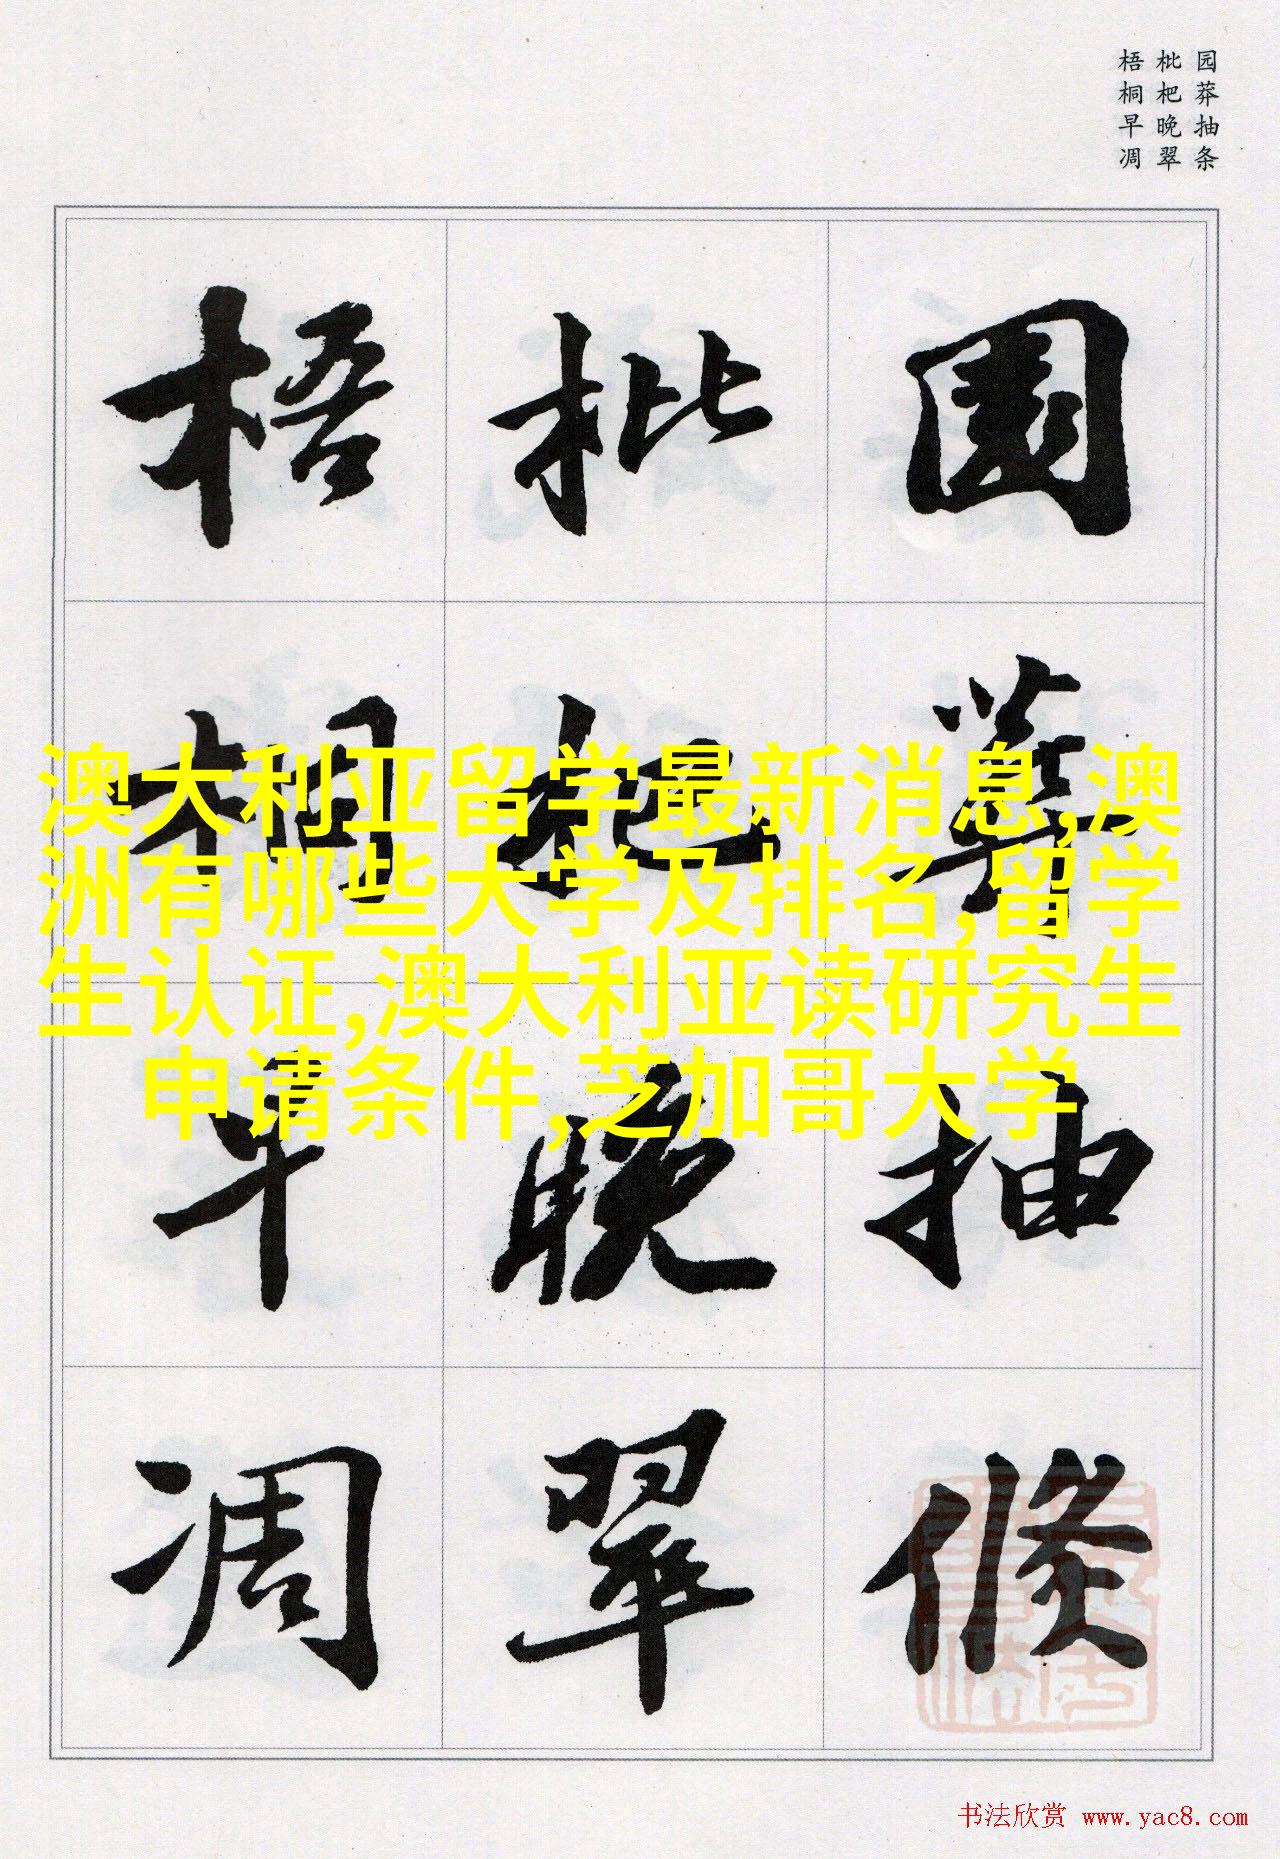 园莽抽条
枇杷晚翠
梧桐早凋
園莽抽條
枇杷晚翠
梧桐早凋
澳大利亚留学最新消息,澳
洲有哪些大学及排名,留学
生认证,澳大利亚读研究生
申请条件,芝加哥大学
书法欣赏 www.yac8.com